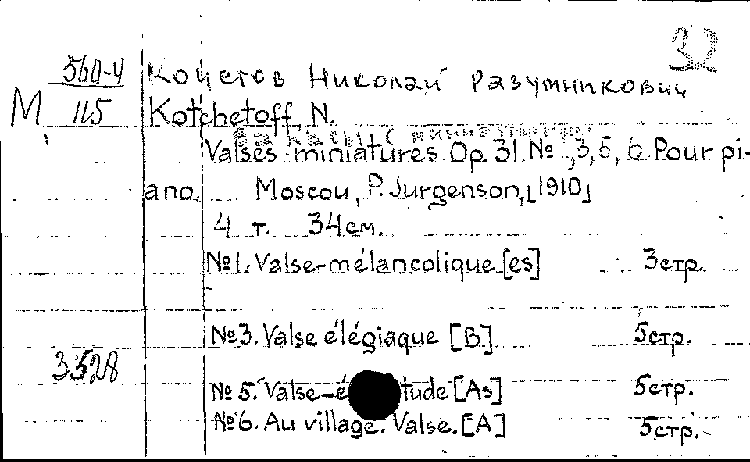 32
560-4 Кочетов Николай Разумникович
М. 115 Kotchetoff, N.
Valses miniatures. Op. 31 № 1, 3, 5, 6. Pour pi-
ano. Moscou, P. Jurgenson, [1910]
4 т. 34 см.
№1. Valse-mélancolique [es] 3 стр.
№3. Valse élégiaque [B] 5 стр.
3528
№5. Valse-é tude [As] 5 стр.
№6. Au village. Valse. [A] 5 стр.